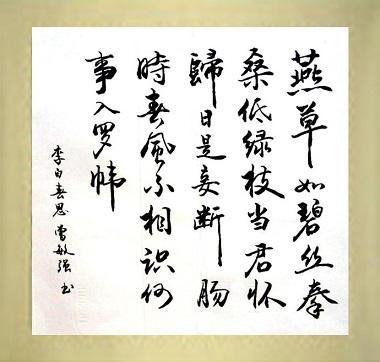 燕草如碧丝秦
桑低绿枝当君怀
歸日是妾断肠
時春風不相识何
事入罗帏
李白春思 曾敏强书